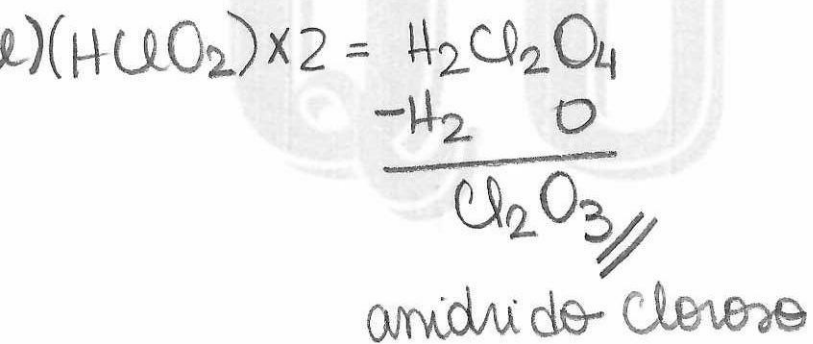 e)(HClO2)x2 = H2Cl2O4
-H2 O
Cl2O3//
anidrido cloroso